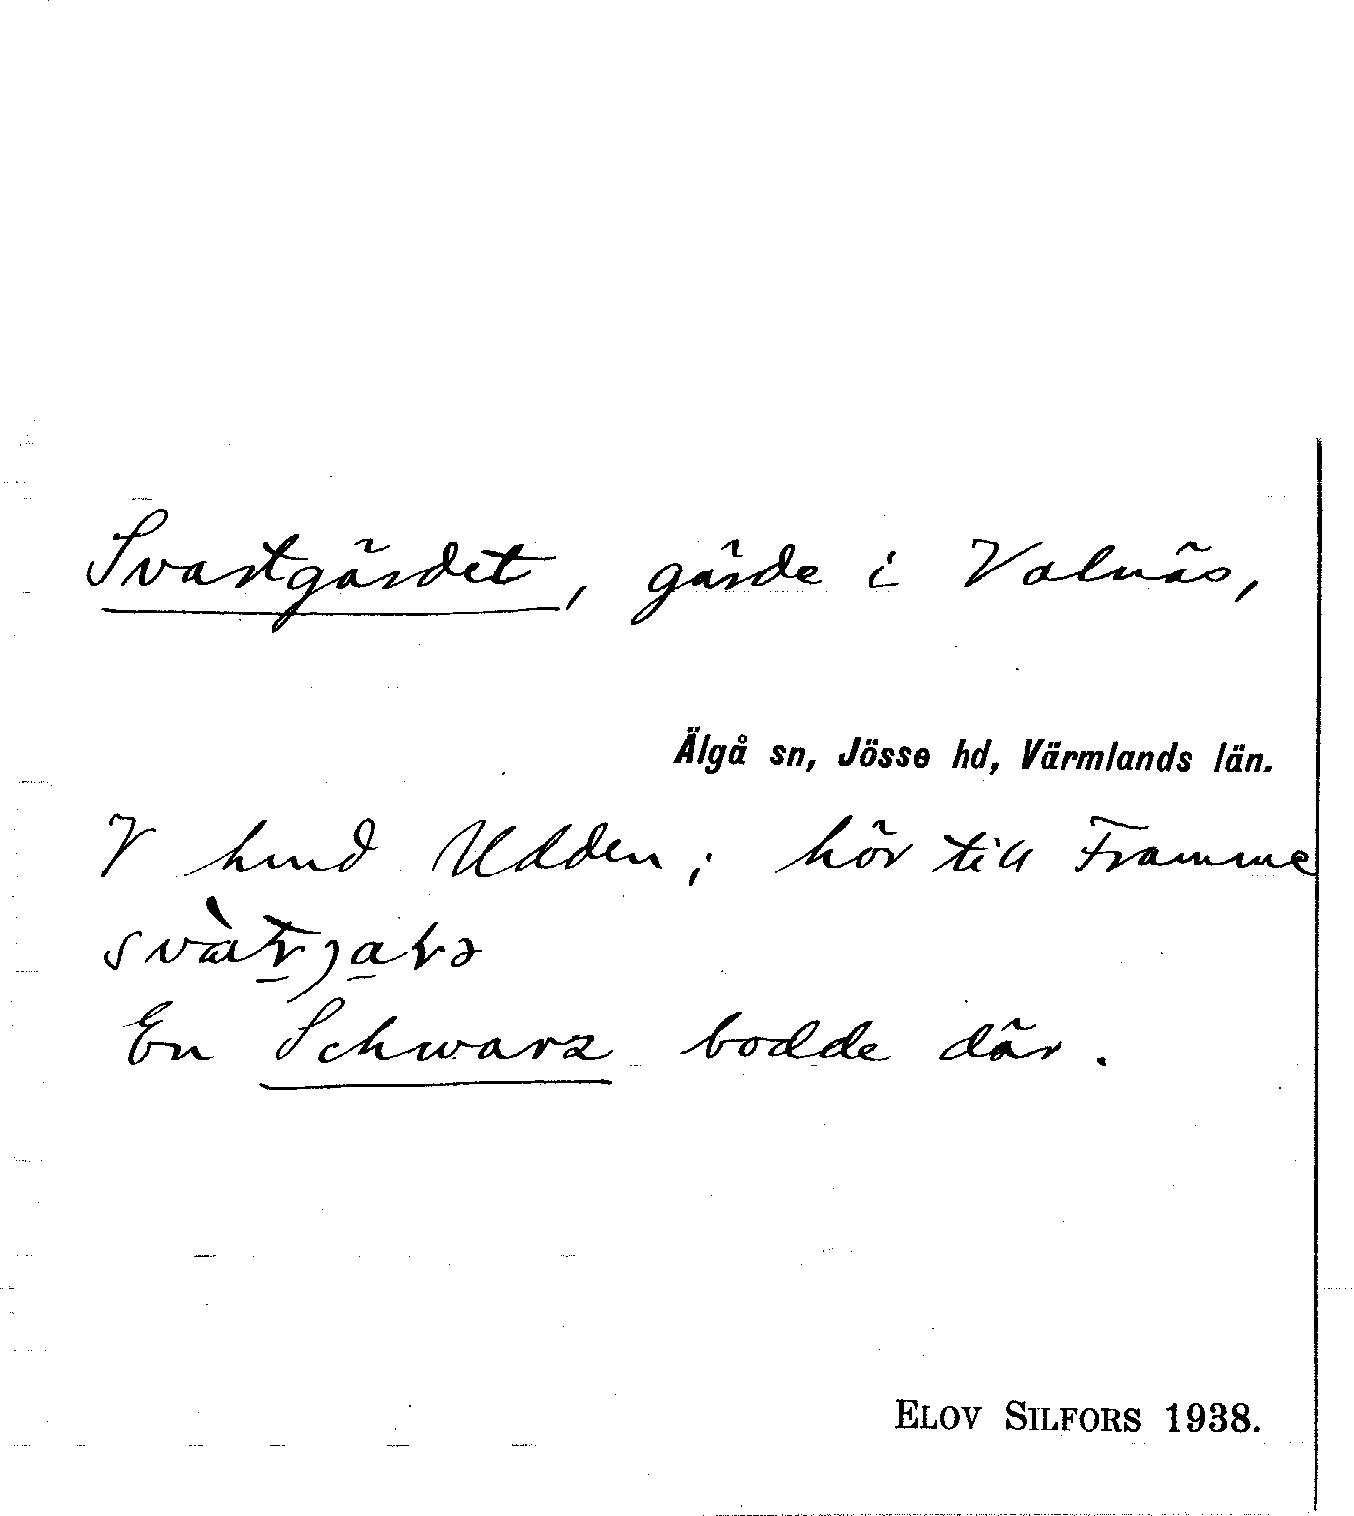 Svartgärdet, gärde i Valnäs,
Älgå sn, Jösse hd, Värmlands län.
V hmd Udden; hör till Framme
En Schwarz bodde där.
ELOV SILFORS 1938.